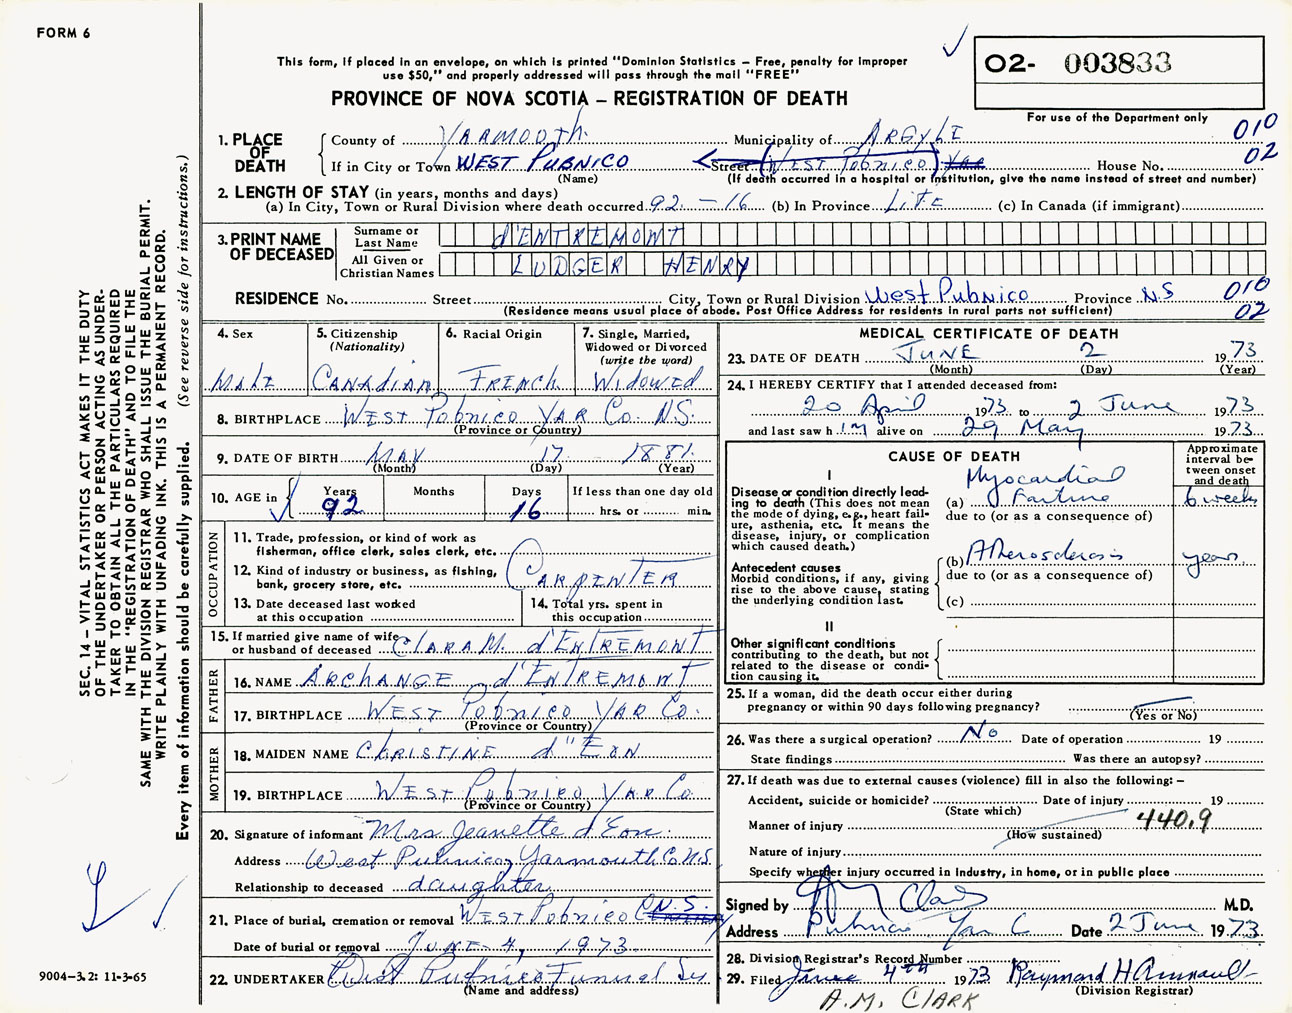 FORM 6
This form, if placed in an envelope, on which is printed "Dominion Statistics – Free, penalty for improper
use $50," and properly addressed will pass through the mail "FREE"
PROVINCE OF NOVA SCOTIA – REGISTRATION OF DEATH
O2- 003833
For use of the Department only
010
02
1. PLACE OF DEATH
County of Yarmouth Municipality of ARGYLE
If in City or Town WEST PUBNICO Street (West Pubnico) Yar House No.
(Name) (If death occurred in a hospital or institution, give the name instead of street and number)
2. LENGTH OF STAY (in years, months and days)
(a) In City, Town or Rural Division where death occurred 92 – 16 (b) In Province LIFE (c) In Canada (if immigrant)
3. PRINT NAME OF DECEASED
Surname or Last Name d'ENTREMONT
All Given or Christian Names LUDGER HENRY
RESIDENCE No. Street City, Town or Rural Division West Pubnico Province N.S 010
02
(Residence means usual place of abode. Post Office Address for residents in rural parts not sufficient)
4. Sex MALE
5. Citizenship (Nationality) CANADIAN
6. Racial Origin FRENCH
7. Single, Married, Widowed or Divorced (write the word) WIDOWED
8. BIRTHPLACE WEST PUBNICO YAR CO. N.S.
(Province or Country)
9. DATE OF BIRTH MAY 17 1881
(Month) (Day) (Year)
10. AGE in Years 92 Months Days 16 If less than one day old hrs. or min.
OCCUPATION
11. Trade, profession, or kind of work as fisherman, office clerk, sales clerk, etc.
12. Kind of industry or business, as fishing, bank, grocery store, etc. CARPENTER
13. Date deceased last worked at this occupation
14. Total yrs. spent in this occupation
15. If married give name of wife or husband of deceased CLARA M. d'ENTREMONT
FATHER
16. NAME ARCHANGE d'ENTREMONT
17. BIRTHPLACE WEST PUBNICO YAR CO.
(Province or Country)
MOTHER
18. MAIDEN NAME CHRISTINE d'EON
19. BIRTHPLACE WEST PUBNICO YAR CO
(Province or Country)
20. Signature of informant Mrs Jeanette d'Eon.
Address West Pubnico, Yarmouth Co. N.S.
Relationship to deceased daughter
21. Place of burial, cremation or removal WEST PUBNICO N.S.
Date of burial or removal JUNE 4, 1973
22. UNDERTAKER West Pubnico Funeral
(Name and address)
MEDICAL CERTIFICATE OF DEATH
23. DATE OF DEATH JUNE 2 1973
(Month) (Day) (Year)
24. I HEREBY CERTIFY that I attended deceased from:
20 April 1973 to 2 June 1973
and last saw him alive on 29 May 1973
CAUSE OF DEATH
Approximate interval between onset and death
I
Disease or condition directly leading to death (This does not mean the mode of dying, e.g., heart failure, asthenia, etc. It means the disease, injury, or complication which caused death.)
(a) Myocardial Failure 6 weeks
due to (or as a consequence of)
Antecedent causes
Morbid conditions, if any, giving rise to the above cause, stating the underlying condition last.
(b) Atherosclerosis years.
due to (or as a consequence of)
(c)
II
Other significant conditions
contributing to the death, but not related to the disease or condition causing it.
25. If a woman, did the death occur either during pregnancy or within 90 days following pregnancy?
(Yes or No)
26. Was there a surgical operation? No Date of operation 19
State findings Was there an autopsy?
27. If death was due to external causes (violence) fill in also the following: –
Accident, suicide or homicide? Date of injury 19
(State which)
Manner of injury 440.9
(How sustained)
Nature of injury
Specify whether injury occurred in Industry, in home, or in public place
Signed by Clark M.D.
Address Pubnico Yar C Date 2 June 1973
28. Division Registrar's Record Number
29. Filed June 4th 1973 Raymond H Amirault
(Division Registrar)
A.M. CLARK
SEC. 14 – VITAL STATISTICS ACT MAKES IT THE DUTY
OF THE UNDERTAKER OR PERSON ACTING AS UNDER-
TAKER TO OBTAIN ALL THE PARTICULARS REQUIRED
IN THE "REGISTRATION OF DEATH" AND TO FILE THE
SAME WITH THE DIVISION REGISTRAR WHO SHALL ISSUE THE BURIAL PERMIT.
WRITE PLAINLY WITH UNFADING INK. THIS IS A PERMANENT RECORD.
Every item of information should be carefully supplied. (See reverse side for instructions.)
9004-3.2: 11-3-65